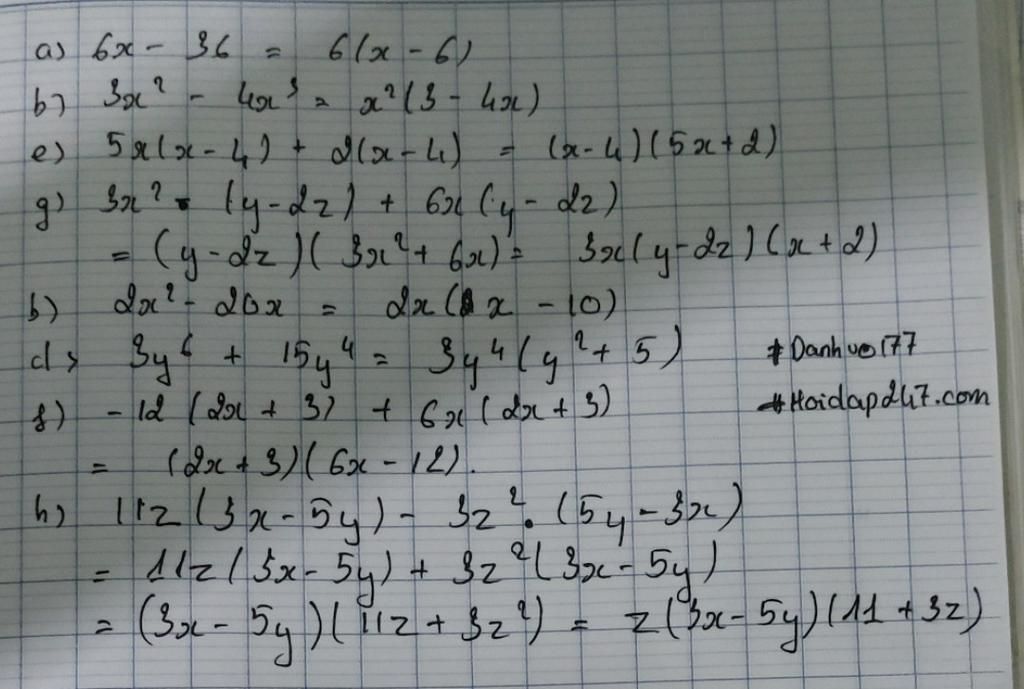 a) 6x - 36 = 6(x - 6)
b) 3x² - 4x³ = x²(3 - 4x)
e) 5x(x - 4) + 2(x - 4) = (x - 4)(5x + 2)
g) 3x² . (y - 2z) + 6x(y - 2z)
= (y - 2z)(3x² + 6x) = 3x(y - 2z)(x + 2)
b) 2x² - 20x = 2x(x - 10)
d) 3y⁶ + 15y⁴ = 3y⁴(y² + 5) #Danhvo177
f) -12(2x + 3) + 6x(2x + 3) #Hoidap247.com
= (2x + 3)(6x - 12).
h) 11z(3x - 5y) - 3z² . (5y - 3x)
= 11z(3x - 5y) + 3z²(3x - 5y)
= (3x - 5y)(11z + 3z²) = z(3x - 5y)(11 + 3z)